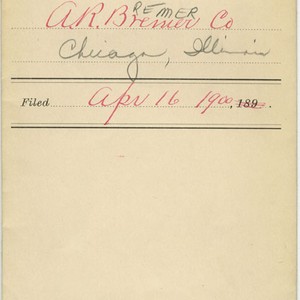 REMER
A.R. Bremer Co
Chicago, Illinois
Filed Apr 16 1900, 189 .